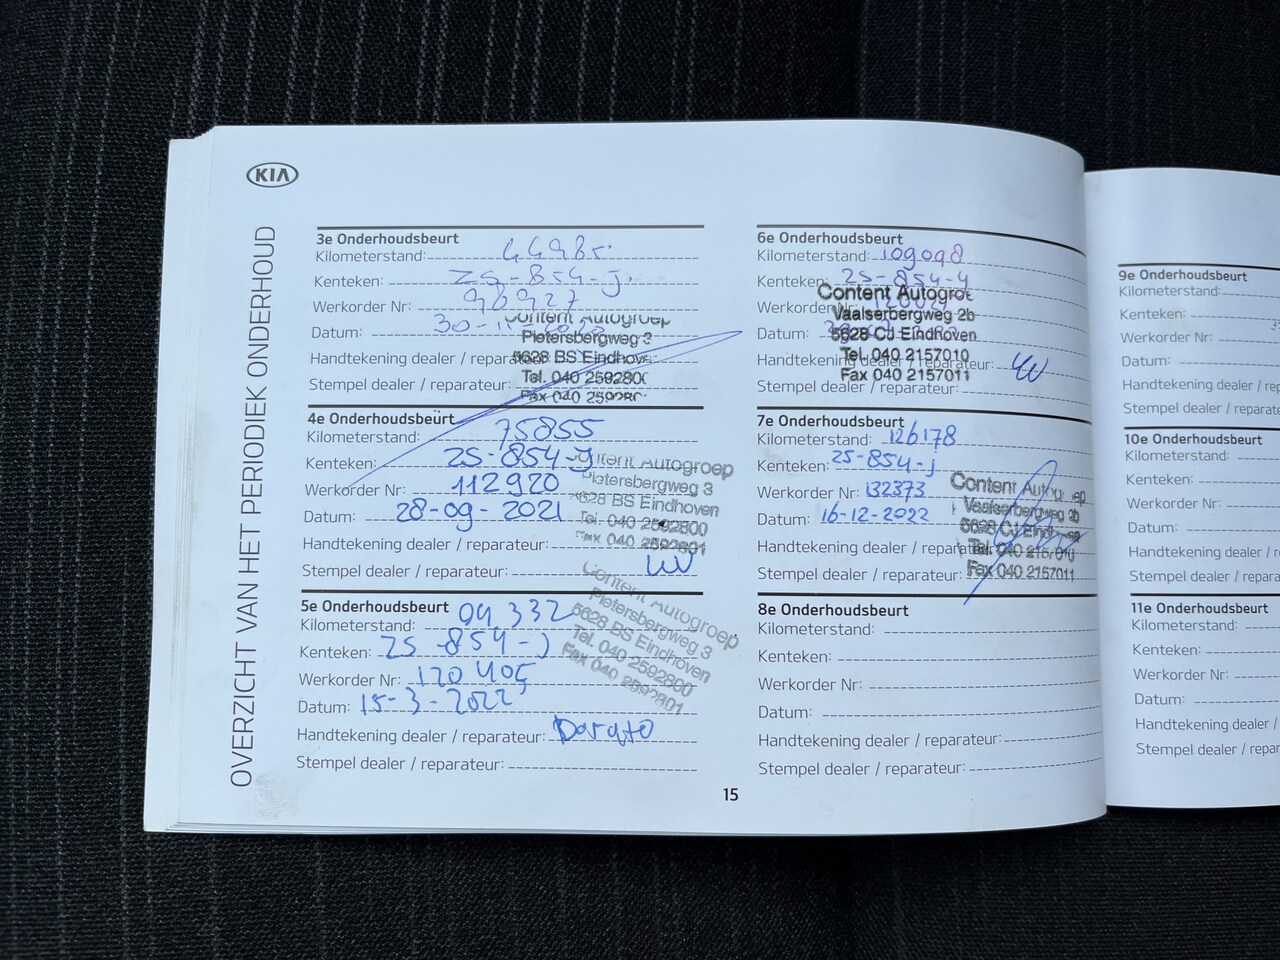 KIA
OVERZICHT VAN HET PERIODIEK ONDERHOUD
3e Onderhoudsbeurt
Kilometerstand: 44985
Kenteken: ZS-854-J.
Werkorder Nr:
Datum: 30-11-2020
Handtekening dealer / reparateur:
Stempel dealer / reparateur:
Content Autogroep
Pietersbergweg 3
5628 BS Eindhoven
Tel. 040 2592800
Fax 040
4e Onderhoudsbeurt
Kilometerstand: 75855
Kenteken: ZS-854-J
Werkorder Nr: 112920
Datum: 28-09-2021
Handtekening dealer / reparateur:
Stempel dealer / reparateur:
Content Autogroep
Pietersbergweg 3
5628 BS Eindhoven
Tel. 040 2592800
Fax 040 2592801
5e Onderhoudsbeurt
Kilometerstand:
Kenteken: ZS-854-J
Werkorder Nr: 120405
Datum: 15-3-2022
Handtekening dealer / reparateur:
Stempel dealer / reparateur:
Content Autogroep
Pietersbergweg 3
5628 BS Eindhoven
Tel. 040 2592800
Fax 040 2592801
6e Onderhoudsbeurt
Kilometerstand: 109098
Kenteken: ZS-854-J
Werkorder Nr:
Datum:
Handtekening dealer / reparateur:
Stempel dealer / reparateur:
Content Autogroe
Vaalserbergweg 2b
5628 CJ Eindhoven
Tel. 040 2157010
Fax 040 2157011
7e Onderhoudsbeurt
Kilometerstand: 126178
Kenteken: ZS-854-J
Werkorder Nr: 132373
Datum: 16-12-2022
Handtekening dealer / reparateur:
Stempel dealer / reparateur:
Content Autogroep
Vaalserbergweg 2b
5628 CJ Eindhoven
Tel. 040 2157010
Fax 040 2157011
8e Onderhoudsbeurt
Kilometerstand:
Kenteken:
Werkorder Nr:
Datum:
Handtekening dealer / reparateur:
Stempel dealer / reparateur:
15
9e Onderhoudsbeurt
Kilometerstand:
Kenteken:
Werkorder Nr:
Datum:
Handtekening dealer /
Stempel dealer / reparate
10e Onderhoudsbeurt
Kilometerstand:
Kenteken:
Werkorder Nr:
Datum:
Handtekening dealer / r
Stempel dealer / repara
11e Onderhoudsbeurt
Kilometerstand:
Kenteken:
Werkorder Nr:
Datum:
Handtekening dealer /
Stempel dealer / repara